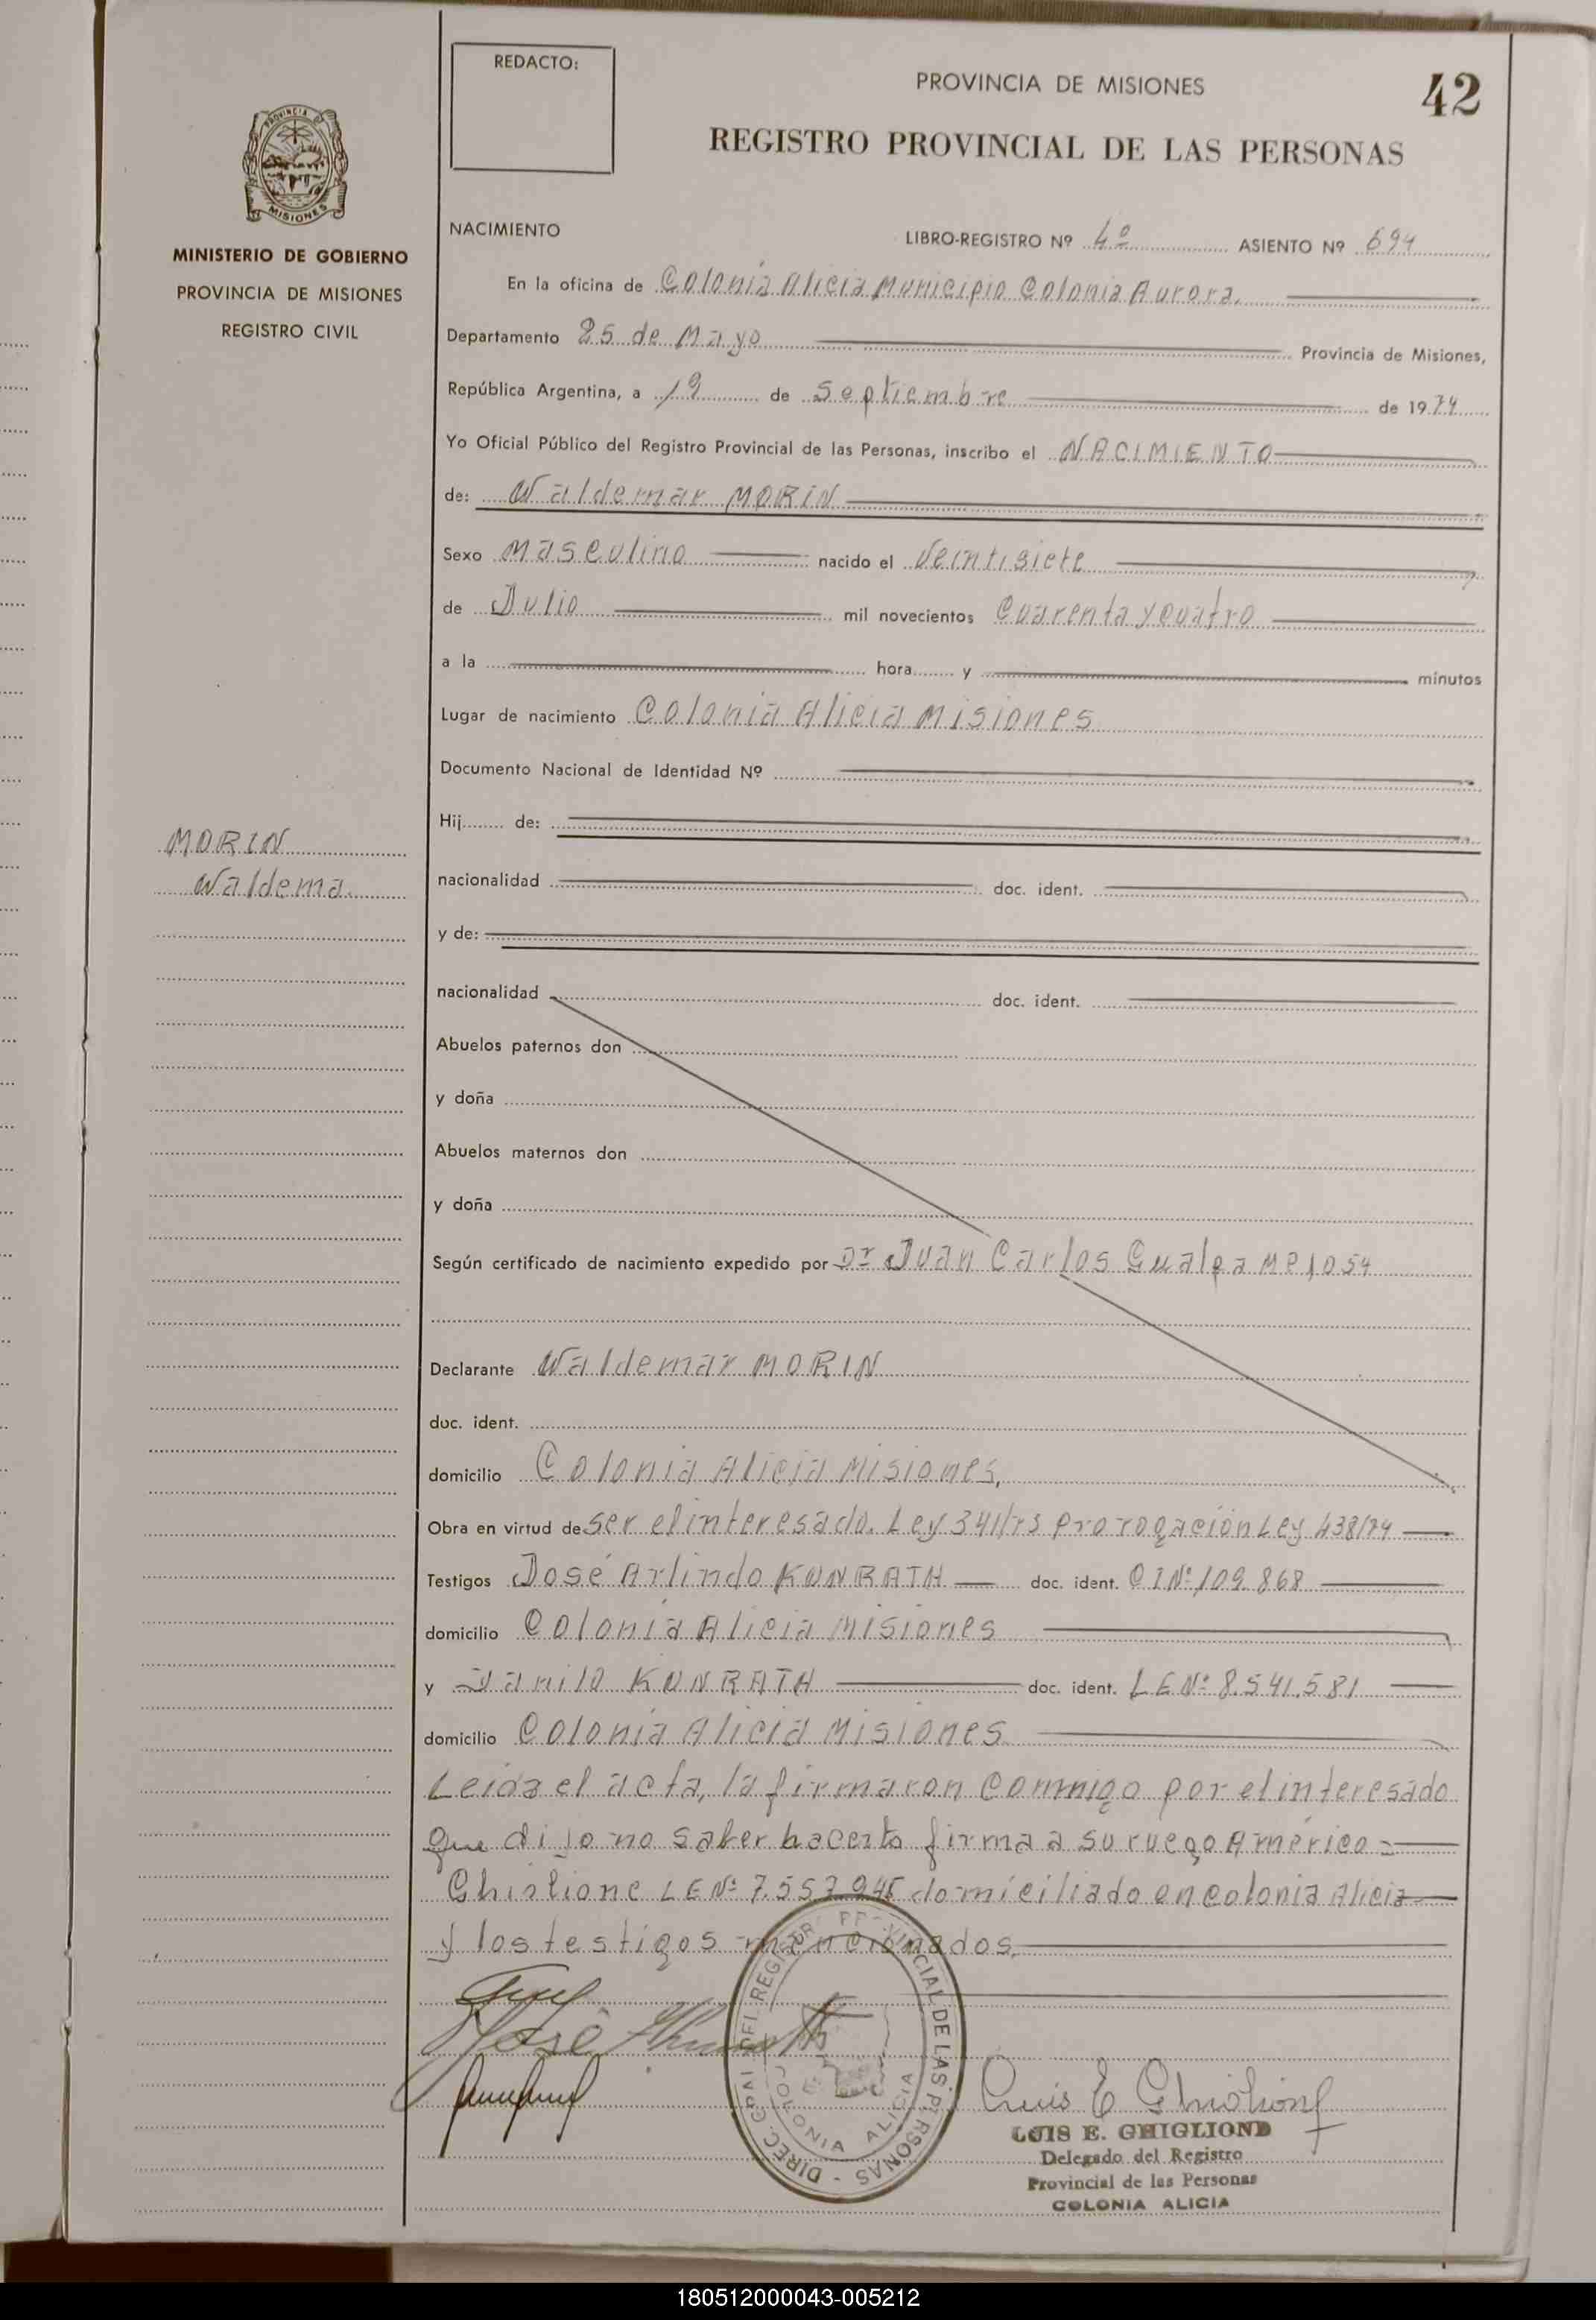 REDACTO:
PROVINCIA DE MISIONES
42
REGISTRO PROVINCIAL DE LAS PERSONAS
PROVINCIA D
MISIONES
MINISTERIO DE GOBIERNO
PROVINCIA DE MISIONES
REGISTRO CIVIL
NACIMIENTO
LIBRO-REGISTRO Nº 4º ASIENTO Nº 694
En la oficina de Colonia Alicia Municipio Colonia Aurora.
Departamento 25 de Mayo Provincia de Misiones,
República Argentina, a 19 de Septiembre de 1974
Yo Oficial Público del Registro Provincial de las Personas, inscribo el NACIMIENTO
de: Waldemar MORIN
Sexo Masculino nacido el Veintisiete
de Julio mil novecientos Cuarenta y cuatro
a la hora y minutos
Lugar de nacimiento Colonia Alicia Misiones
Documento Nacional de Identidad Nº
Hij de:
MORIN
Waldema
nacionalidad doc. ident.
y de:
nacionalidad doc. ident.
Abuelos paternos don
y doña
Abuelos maternos don
y doña
Según certificado de nacimiento expedido por Dr Juan Carlos Gualpa MP1054
Declarante Waldemar MORIN
doc. ident.
domicilio Colonia Alicia Misiones,
Obra en virtud de ser el interesado. Ley 341/73 Prorogación Ley 438/74
Testigos José Arlindo KUNRATH doc. ident. CI Nº 109.868
domicilio Colonia Alicia Misiones
y Danilo KUNRATH doc. ident. LE Nº 8.541.581
domicilio Colonia Alicia Misiones
Leida el acta, la firmaron conmigo por el interesado
que dijo no saber hacerlo firma a su ruego Américo =
Ghiglione LE Nº 7.557.945 domiciliado en colonia Alicia
y los testigos mencionados.
DIREC. GRAL DEL REGISTR PROVINCIAL DE LAS PERSONAS -
COLONIA ALICIA
José Kunrath
Luis E Ghiglione
LUIS E. GHIGLIOND
Delegado del Registro
Provincial de las Personas
COLONIA ALICIA
180512000043-005212